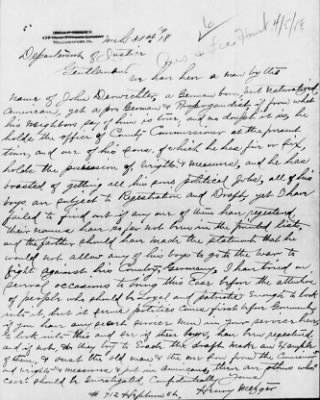 March 31st 18
4/5/18
Department of Justice
Gentlemen
We have here a man by the
name of John, a German born, but Naturalized
American, yet a pro German & Propagandist, if from what
his Neighbors say of him is true, and no doubt it is, he
holds the office of County Commissioner at the present
time, and one of his sons, of which he has five or six,
holds the possession of weights & measures, and he has
boasted of getting all his sons Political Jobs, all of his
boys are subject to Registration and Draft, yet I have
failed to find out if any one of them have registered
their names have so far not been in the printed lists,
and the father should have made the statement that he
would not allow any of his boys to go to the war to
fight against his Country, Germany, I have tried on
several occasions to bring this Case before the attention
of people who should be loyal and patriotic enough to look
into it, but it seems politics comes first before
if you have any secret service men in your service,
to look into this and see if these boys have registered
and if not, do they try to Evade the draft, make an Example
of them, & oust the old man & the one from the
and weights & measures & put in Americans, there are others who
Case should be investigated, Confidentially yours
Henry Metzger
# 712 Hepburn St.